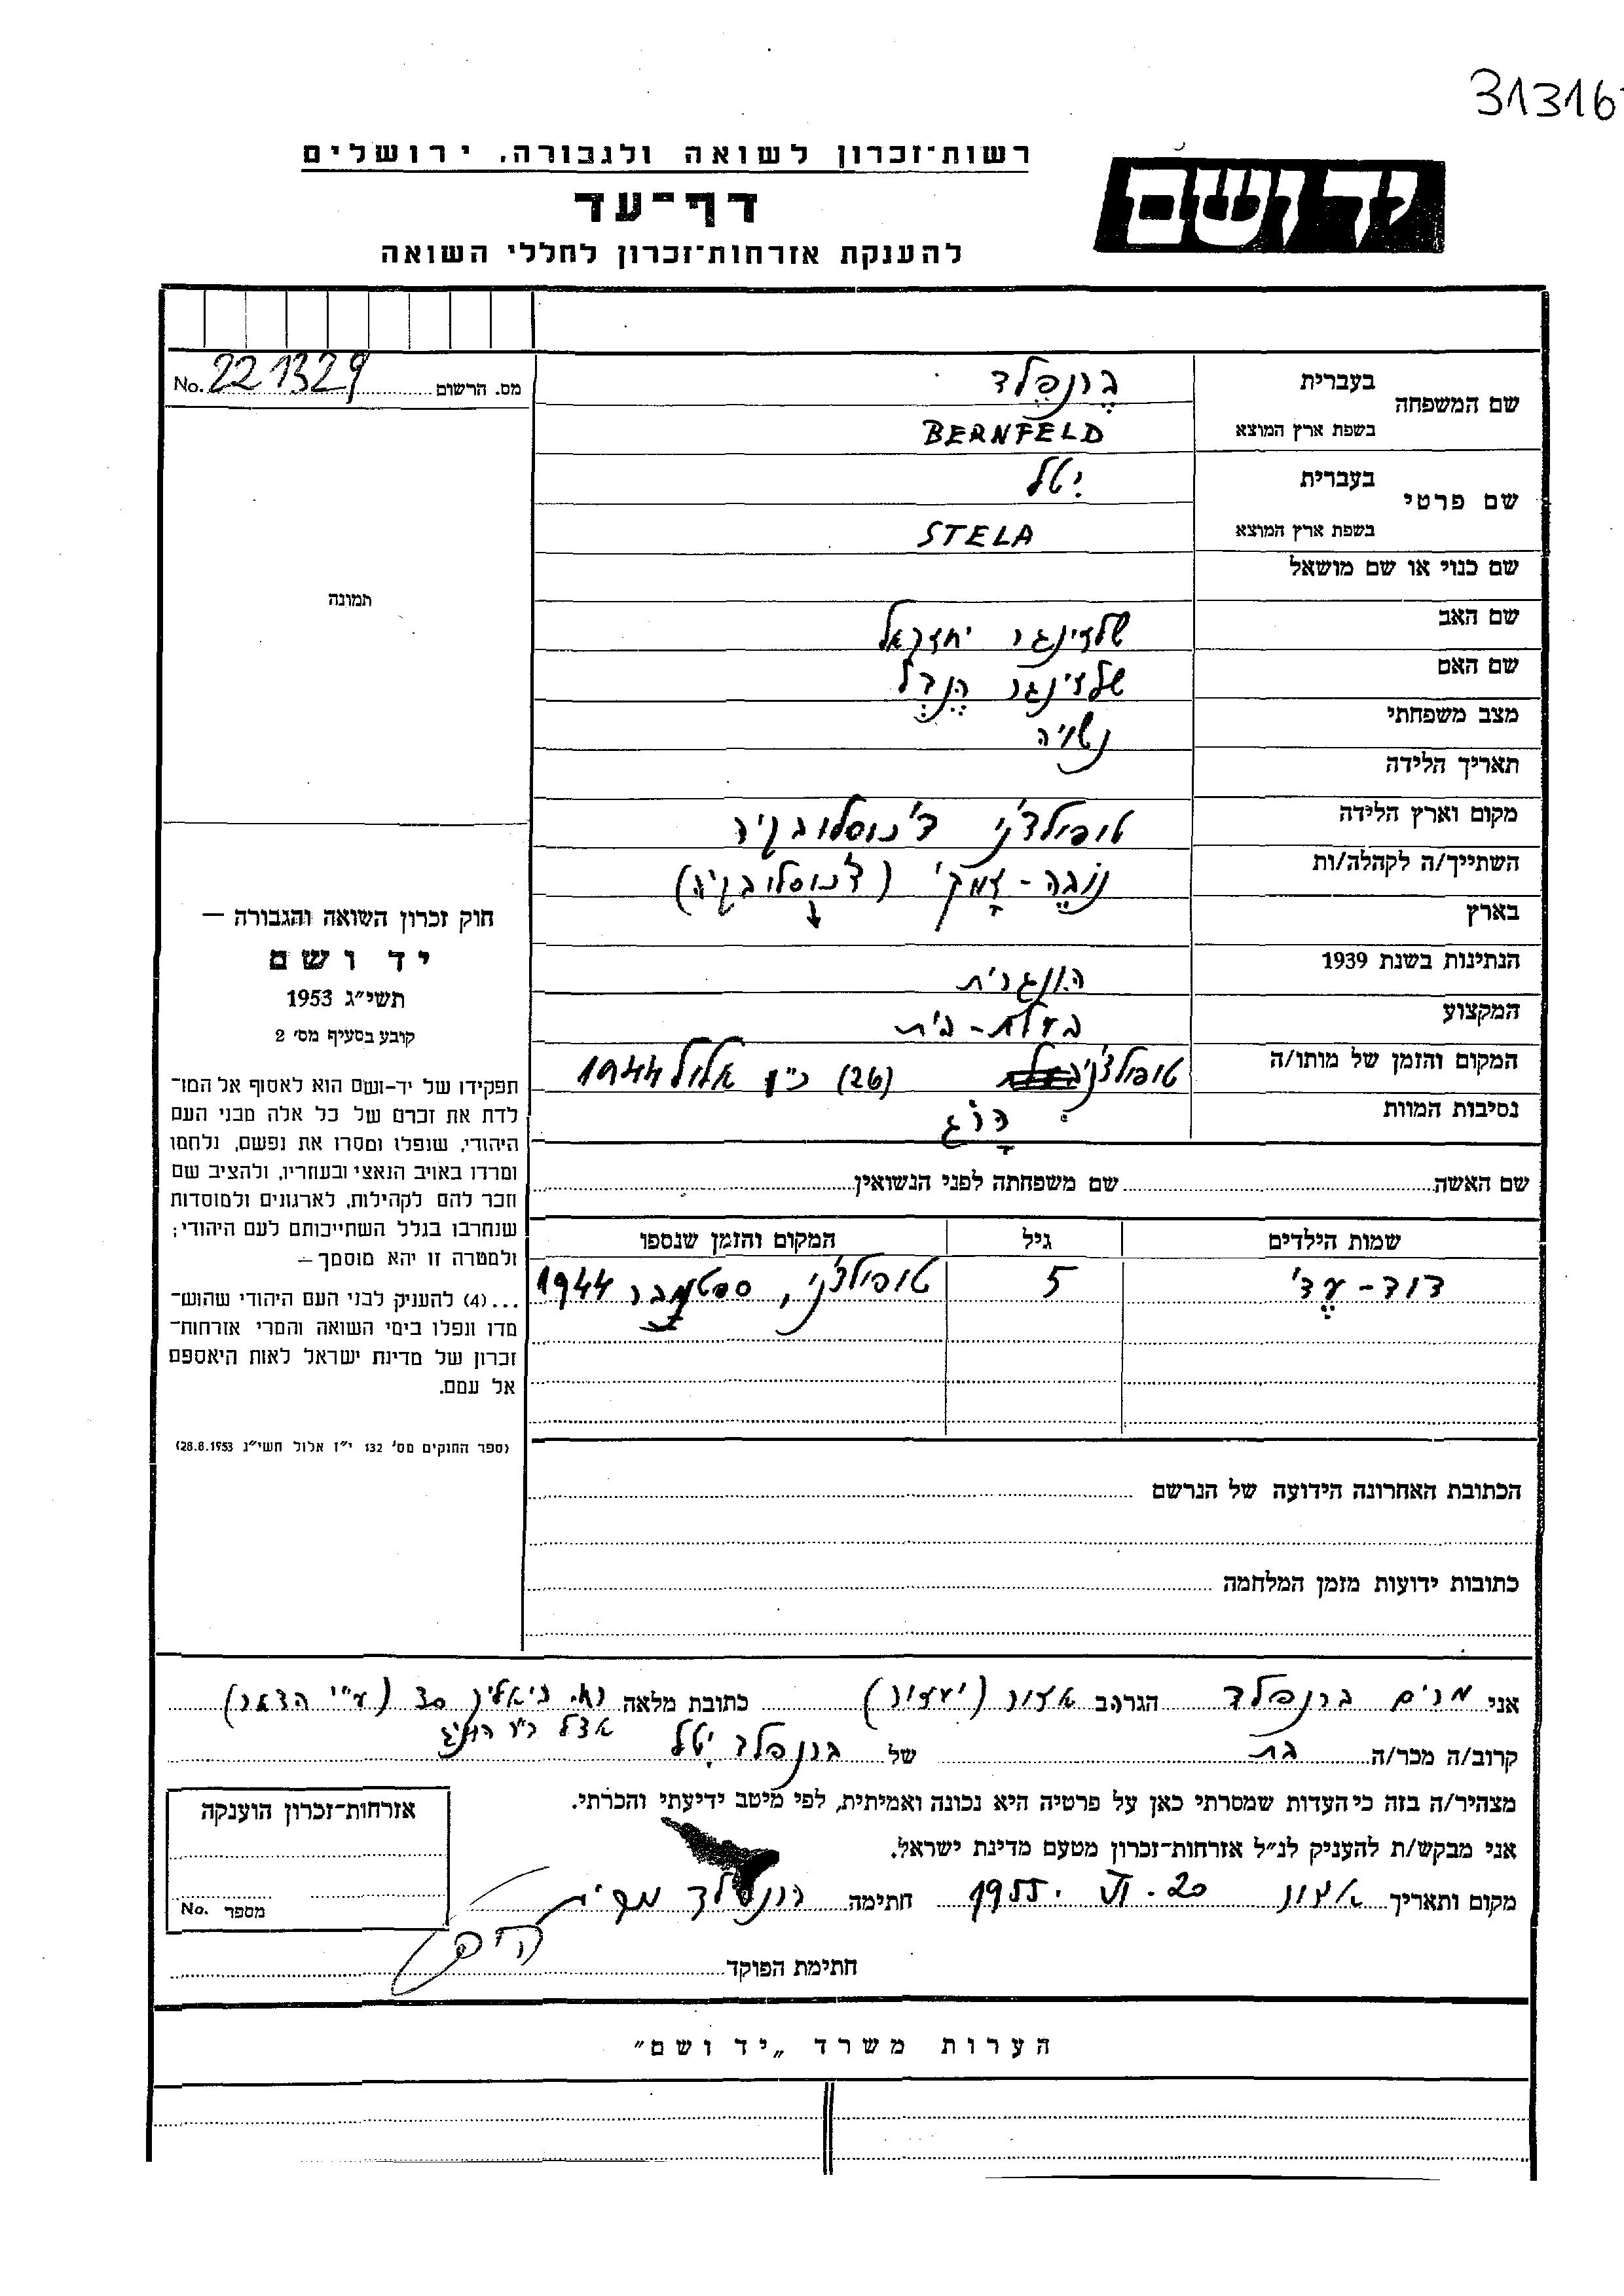 31316
רשות־זכרון לשואה ולגבורה, ירושלים
יד ושם
דף־עד
להענקת אזרחות־זכרון לחללי השואה
מס. הרשום 221329 No.
שם המשפחה
בעברית בֶרנפֶלד
בשפת ארץ המוצא BERNFELD
שם פרטי
בעברית יִטל
בשפת ארץ המוצא STELA
שם כנוי או שם מושאל
שם האב שלזינגר יחזקאל
שם האם שלזינגר הֶנדֶל
מצב משפחתי נשויה
תאריך הלידה
מקום וארץ הלידה טופולצ'ני צ'כוסלובקיה
השתייך/ה לקהלה/ות נובֶה-זָמקי (צ'כוסלובקיה)
בארץ
הנתינות בשנת 1939 הונגרית
המקצוע בעלת-בית
המקום והזמן של מותו/ה טופולצ'ני (26) כ"ו אלול 1944
נסיבות המוות
שם האשה שם משפחתה לפני הנשואין
שמות הילדים גיל המקום והזמן שנספו
דוד- 5 טופולצ'ני, ספטמבר 1944
הכתובת האחרונה הידועה של הנרשם
כתובות ידועות מזמן המלחמה
תמונה
חוק זכרון השואה והגבורה —
יד ושם
תשי״ג 1953
קובע בסעיף מס׳ 2
תפקידו של יד-ושם הוא לאסוף אל המו־
לדת את זכרם של כל אלה מבני העם
היהודי, שנפלו ומסרו את נפשם, נלחמו
ומרדו באויב הנאצי ובעוזריו, ולהציב שם
וזכר להם לקהילות, לארגונים ולמוסדות
שנחרבו בגלל השתייכותם לעם היהודי;
ולמטרה זו יהא מוסמך —
...(4) להעניק לבני העם היהודי שהוש־
מדו ונפלו בימי השואה והמרי אזרחות־
זכרון של מדינת ישראל לאות היאספם
אל עמם.
(ספר החוקים מס׳ 132 י״ז אלול תשי״ג 28.8.1953)
אני מרים ברנפלד הגר/ה ב אזור (יאזור) כתובת מלאה רח. ביאליק 30 (ע"י הדאר)
אצל
קרוב/ה מכר/ה בת של ברנפלד יִטל
מצהיר/ה בזה כי העדות שמסרתי כאן על פרטיה היא נכונה ואמיתית, לפי מיטב ידיעתי והכרתי.
אני מבקש/ת להעניק לנ״ל אזרחות־זכרון מטעם מדינת ישראל.
מקום ותאריך אזור 20.VI.1955 חתימה ברנפלד מרים
חתימת הפוקד
אזרחות־זכרון הוענקה
מספר No.
הערות משרד „יד ושם״